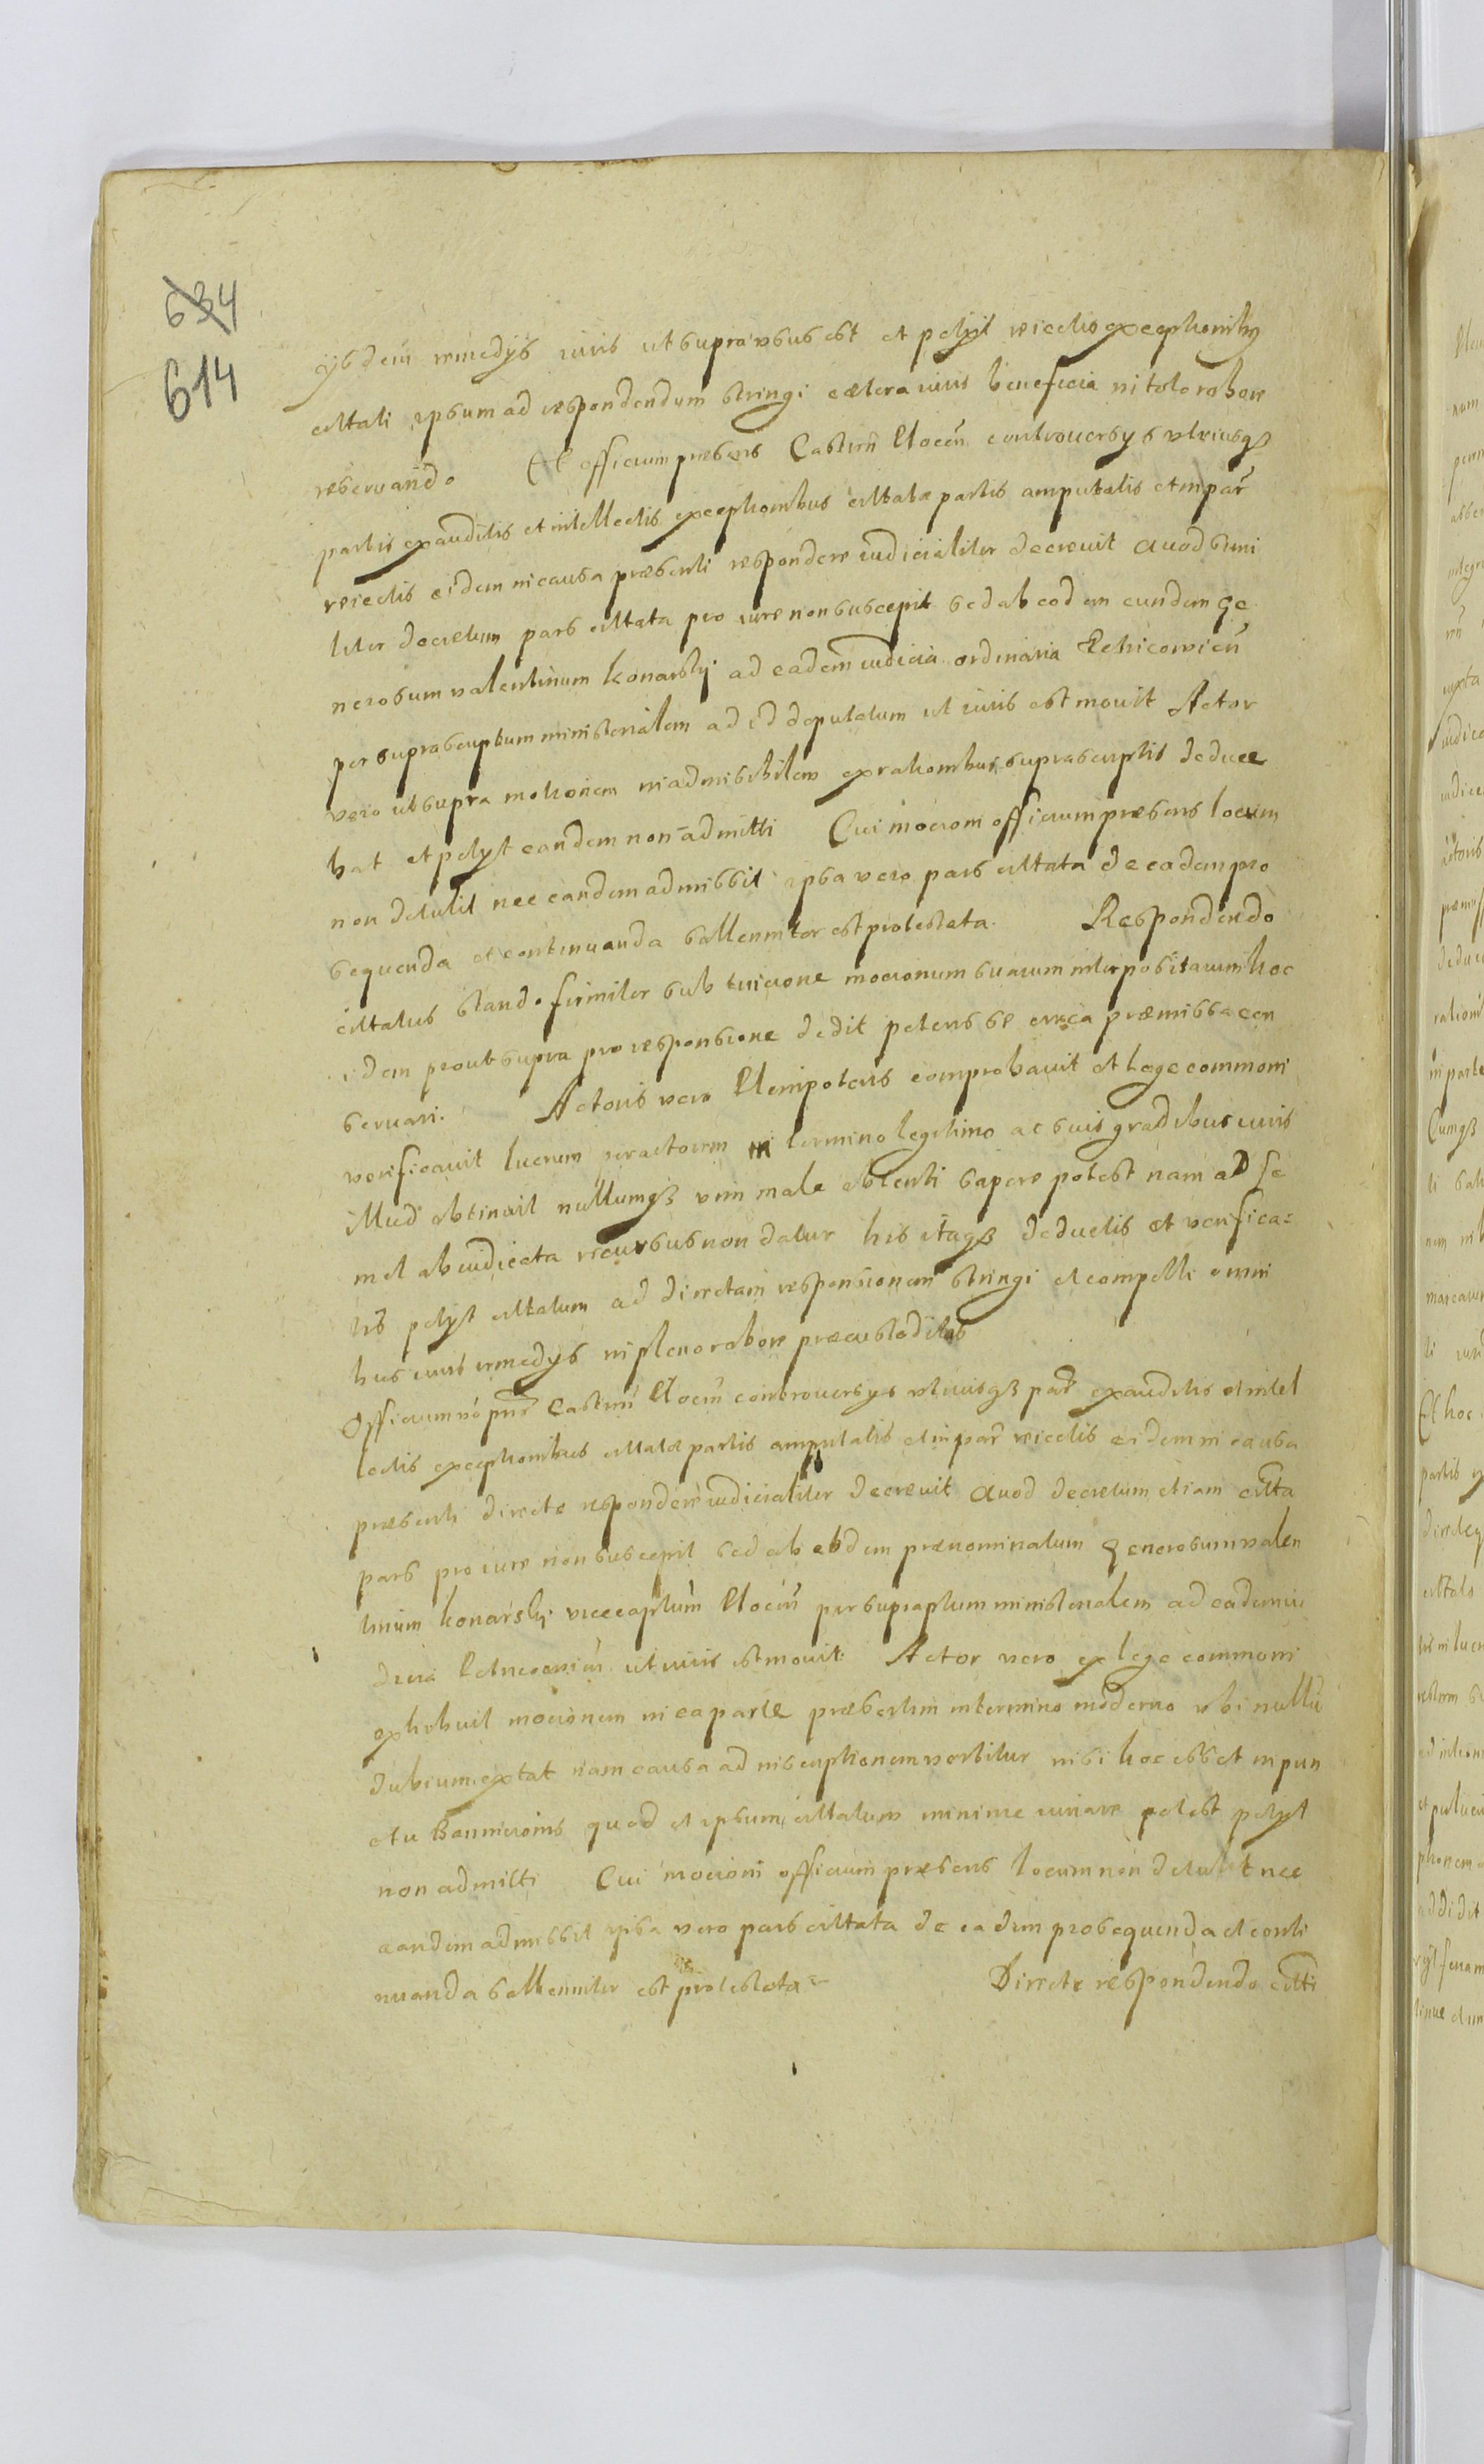 634
614
ijsdem remedijs iuris ut supra usus est et petijt reiectis exceptionibus
citati ipsum ad respondendum stringi cætera iuris beneficia in toto robore
reservando Et officium præsens Castren Plocen controversijs utriusq3
partis exauditis et intellectis exceptionibus citatæ partis amputatis et in par
reiectis eidem in causa præsenti respondere iudicialiter decrevit Quod simi
liter decretum pars citata pro iure non suscepit sed ab eodem eundem ge
nerosum valentinum konarskj ad eadem iudicia ordinaria Petricovien
per suprascriptum ministerialem ad id deputatum ut iuris est movit Actor
vero ut supra motionem inadmisibilem ex rationibus suprascriptis deduce
bat et petijt eandem non admitti Cui mocioni officium præsens locum
non detulit nec eandem admissit ipsa vero pars citata de eadem pro
sequenda et continuanda sollenniter est protestata. Respondendo
citatus stando firmiter sub tuicione mocionum suarum interpositarum hoc
idem prout supra pro responsione dedit petens se circa præmissa con
servari. Actoris vero Plenipotens comprobavit et lege commoni
verificavit lucrum per actorem in termino legitimo ac suis gradibus iuris
illud obtinuit nullumq3 vim male obtenti sapere potest nam ad se
mel abiudicata recursus non datur his itaq3 deductis et verifica-
tis petijt citatum ad directam responsionem stringi et compelli omni
bus iuris remedijs in pleno robore præcustoditis
Officium vo pns Castren Plocen controversijs utriusq3 par exauditis et intel
lectis exceptionibus citatæ partis amputatis et in par reiectis eidem in causa
præsenti directe respondere iudicialiter decrevit Quod decretum etiam citta
pars pro iure non suscepit sed ab eodem prænominatum Generosum valen
tinum konarskj vicecaptum Plocen per supraptum ministerialem ad eadem iu
dicia Petricovien ut iuris est movit. Actor vero ex lege commoni
exhibuit mocionem in ea parte præsertim in termino moderno ubi nullu
dubium extat nam causa ad inscriptionem vertitur nisi hoc esset in pun
cto Bannicionis quod et ipsum citatum minime iuvare potest petijt
non admitti Cui mocioni officium præsens locum non detulit nec
eandem admissit ipsa vero pars cittata de eadem prosequenda et conti
nuanda sollenniter est protestata Directe respondendo citti